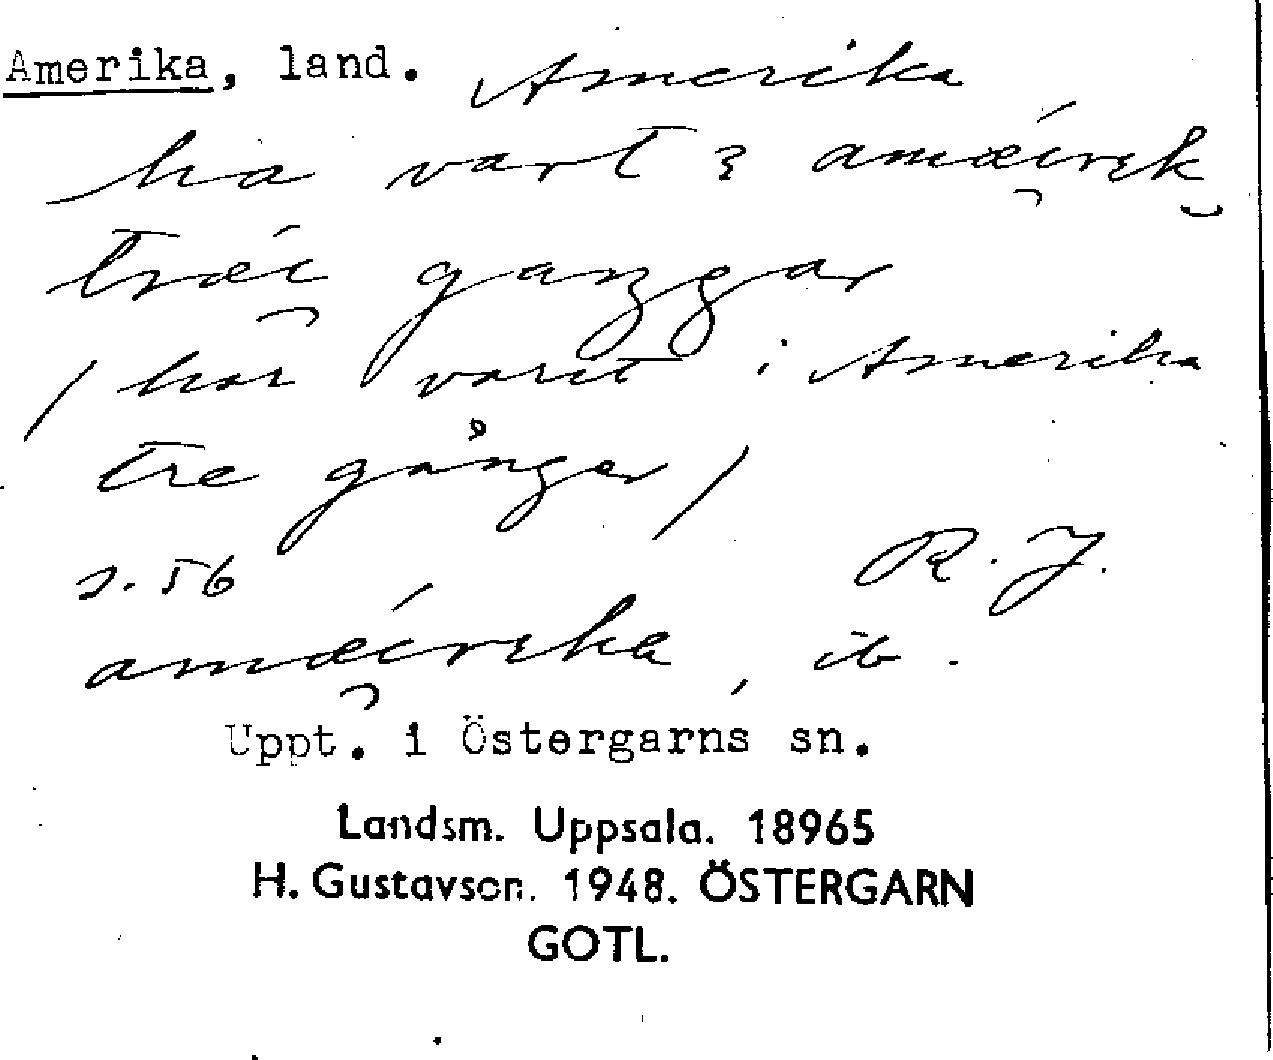 Amerika, land. Amerika
ha vart i amäirik
träi gangar
/har varit i Amerika
tre gånger/
s. 56 R. J.
amäirika, ib.
Uppt. i Östergarns sn.
Landsm. Uppsala. 18965
H. Gustavson. 1948. ÖSTERGARN
GOTL.